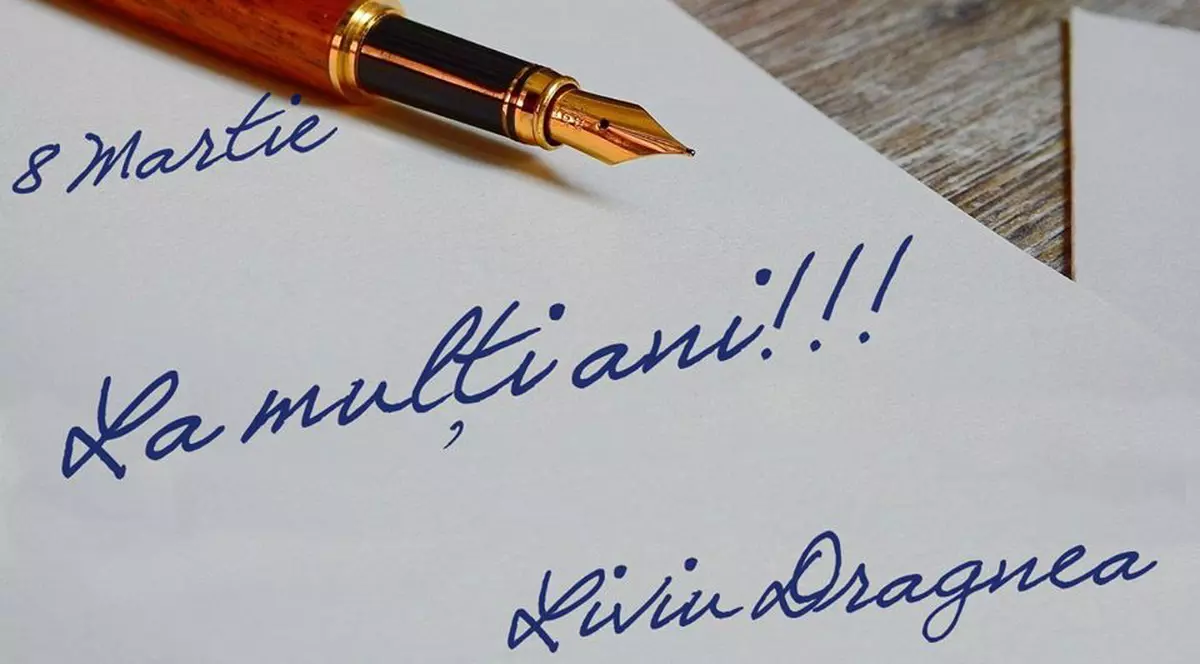 8 Martie
La mulți ani!!!
Liviu Dragnea